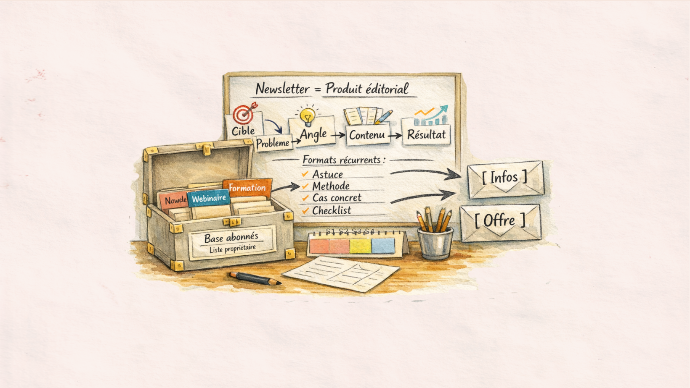 Newsletter = Produit éditorial
Cible
Probleme
Angle
Contenu
Résultat
Formats récurrents :
Astuce
Methode
Cas concret
Checklist
Webinaire
Formation
Base abonnés
Liste propriétaire
[ Infos ]
[ Offre ]